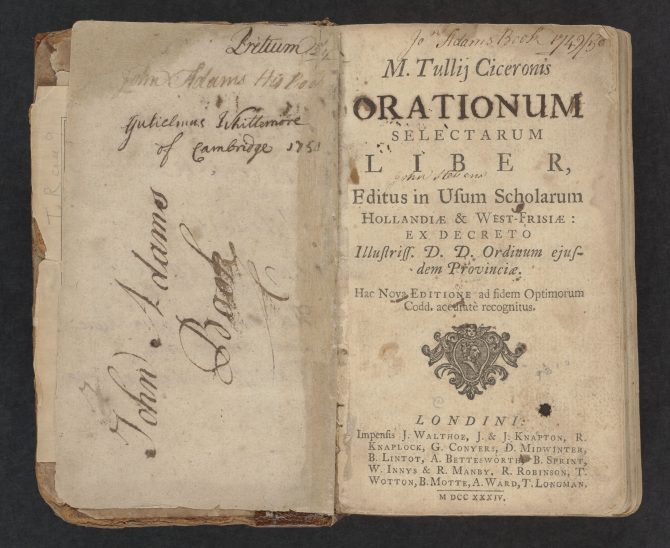 Pretium
John Adams His Boo
Gulielmus Whittemore
of Cambridge 175
John Adams
Book
Jo Adams Book 1749/50
M. Tullij Ciceronis
ORATIONUM
SELECTARUM
LIBER,
John Stevens
Editus in Usum Scholarum
HOLLANDIÆ & WEST-FRISIÆ:
EX DECRETO
Illustriss. D. D. Ordinum ejus-
dem Provinciæ.
Hac Nova EDITIONE ad fidem Optimorum
Codd. accuratè recognitus.
LONDINI:
Impensis J. WALTHOE, J. & J. KNAPTON, R.
KNAPLOCK, G. CONYERS, D. MIDWINTER,
B. LINTOT, A. BETTESWORTH, B. SPRINT,
W. INNYS & R. MANBY, R. ROBINSON, T.
WOTTON, B. MOTTE, A. WARD, T. LONGMAN.
M DCC XXXIV.